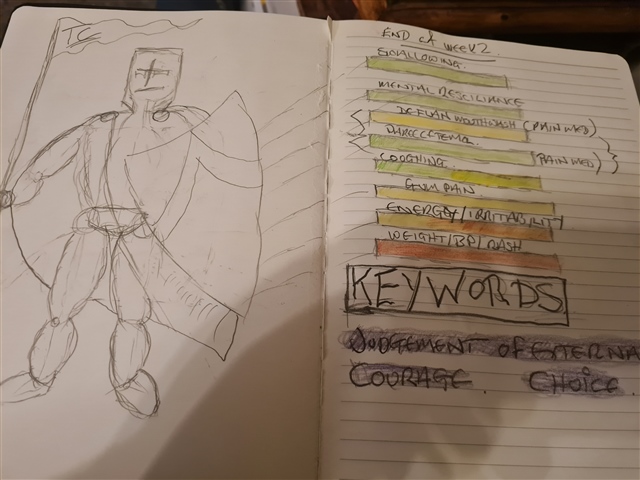 TC
END of WEEK 2.
SWALLOWING.
MENTAL RESCILIANCE
DEFLAM MOUTHWASH (PAIN MED)
(PAIN MED)
COUGHING
GUM PAIN
ENERGY/IRRITABILITY
WEIGHT/BP/RASH
KEYWORDS
JUDGEMENT OF EXTERNA
COURAGE. CHOICE.